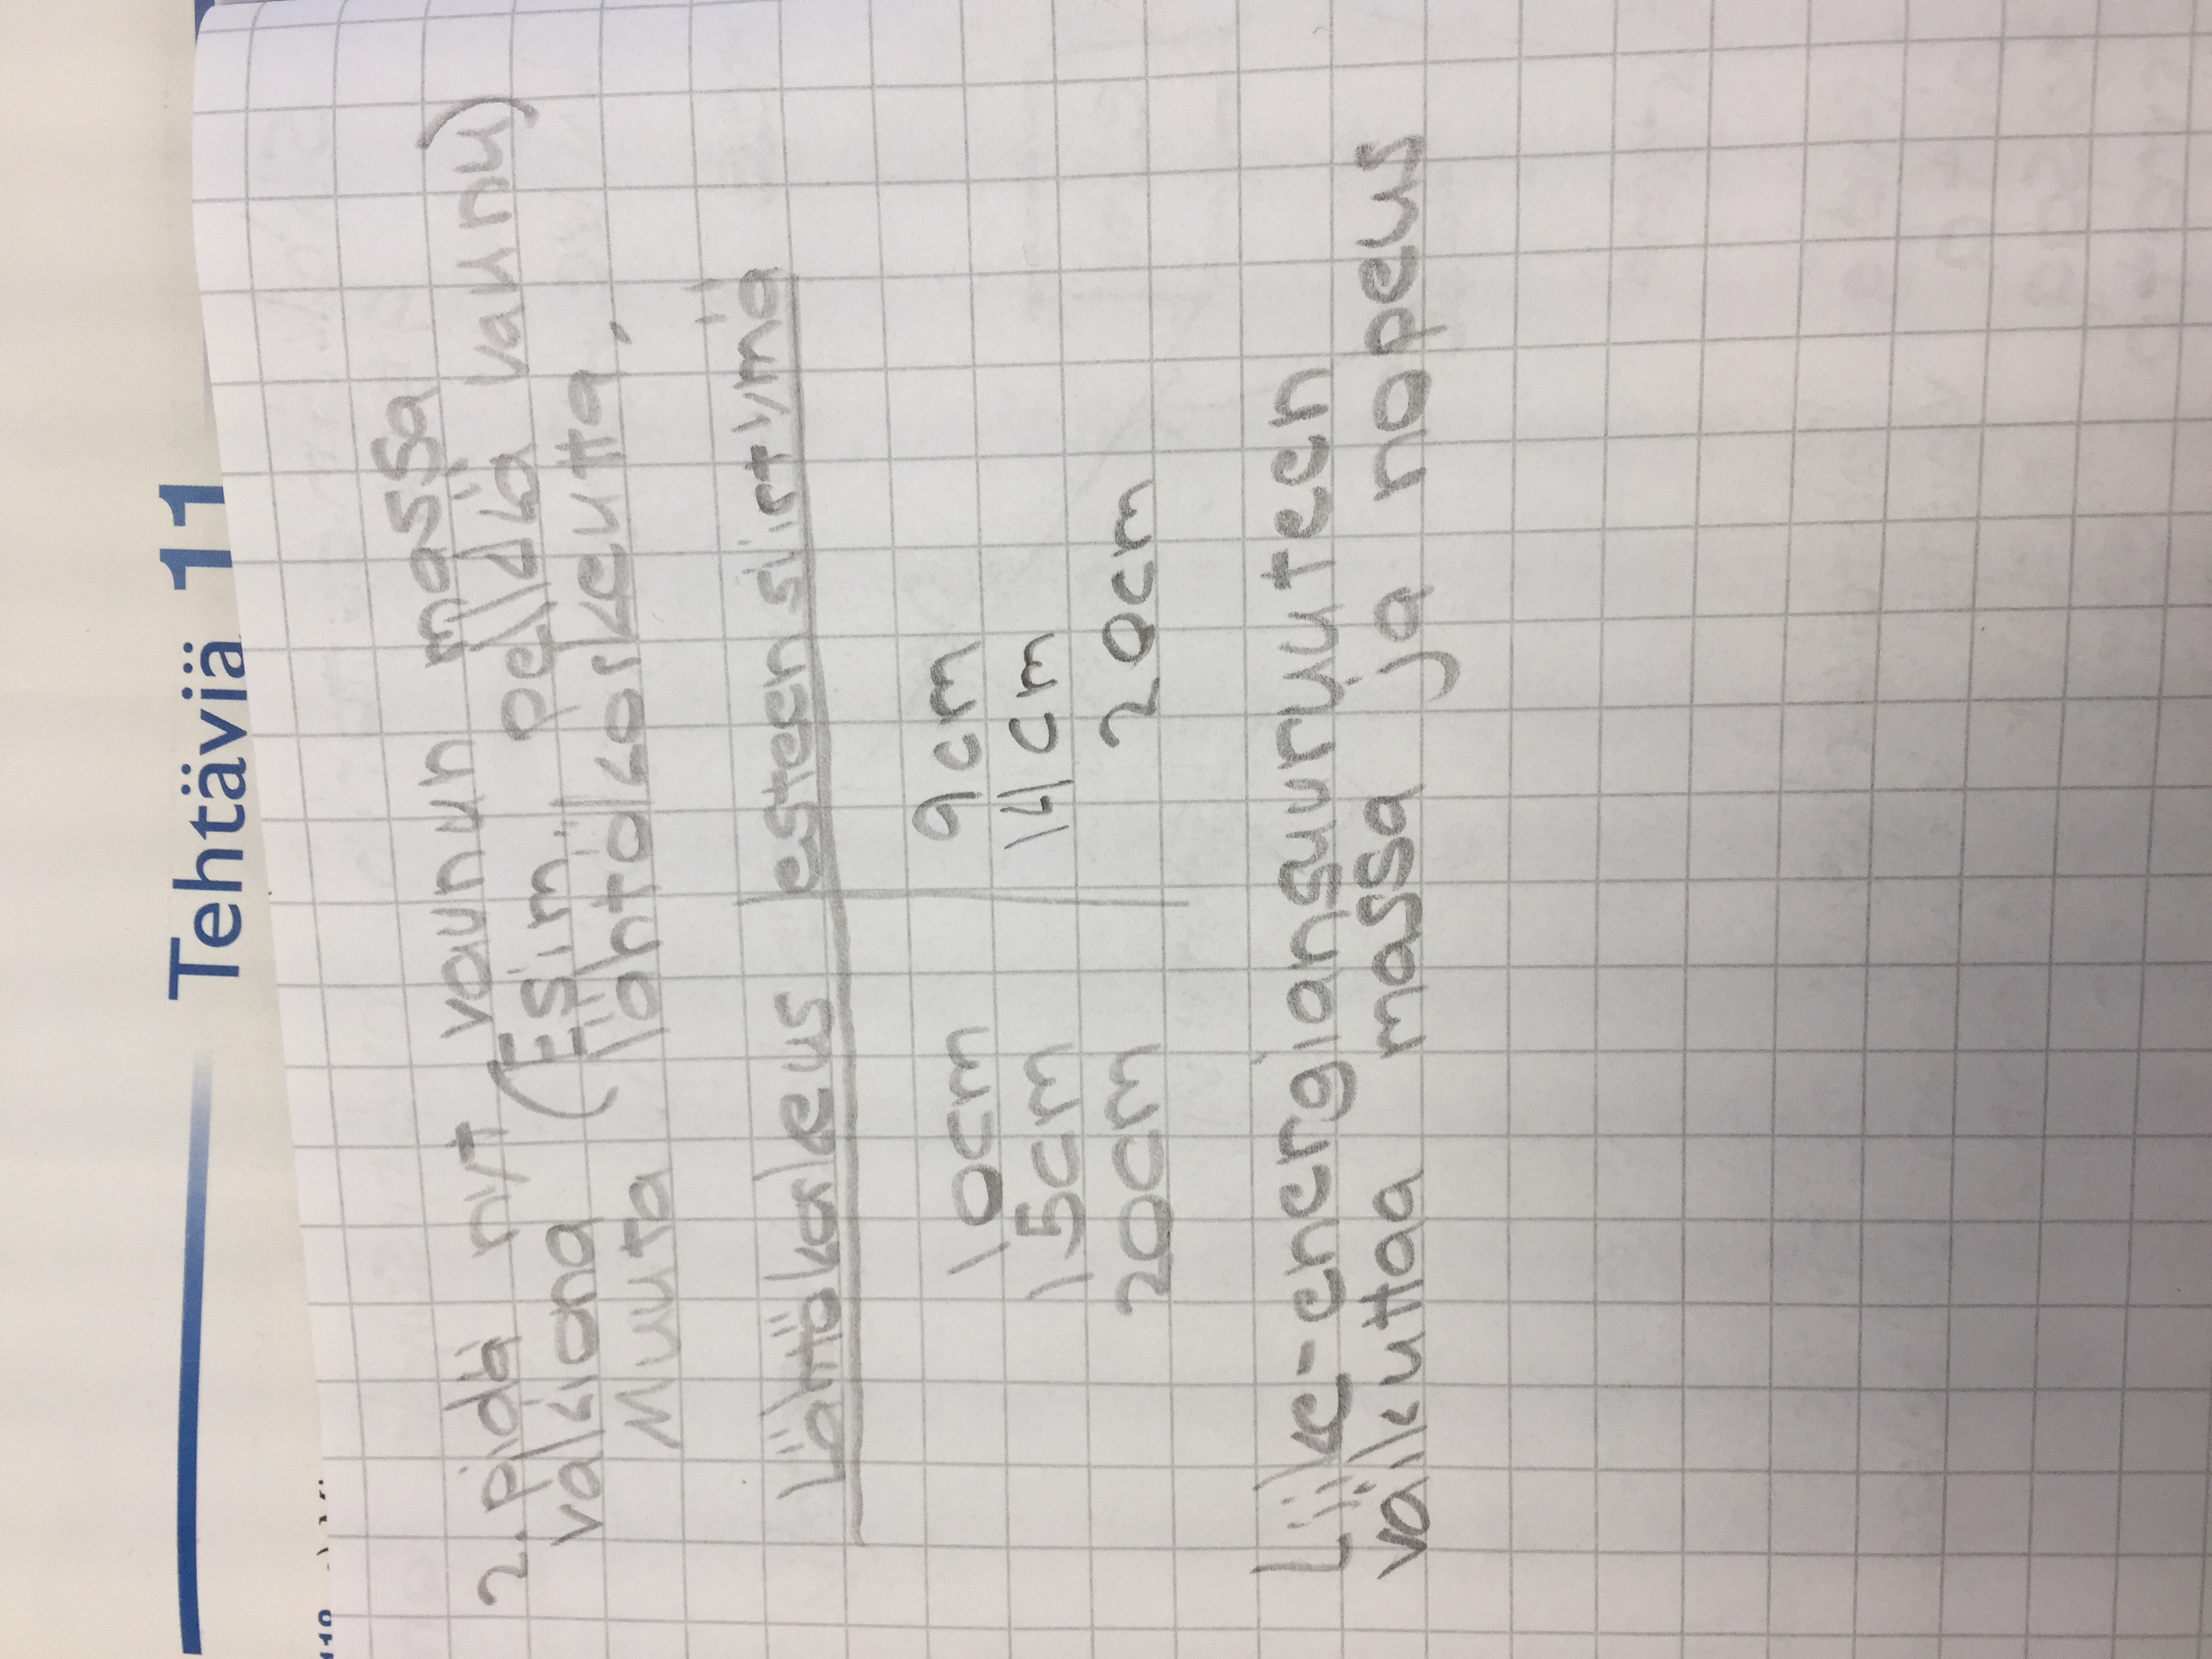 Tehtäviä 11
2. Pidä nyt vaunun massa
vakiona (Esim. pelkkä vaunu)
Muuta lähtökorkeutta.
Lähtökorkeus esteen siirtymä
10cm 9cm
15cm 14cm
20cm 20cm
Liike-energiansuuruuteen
vaikuttaa massa ja nopeus